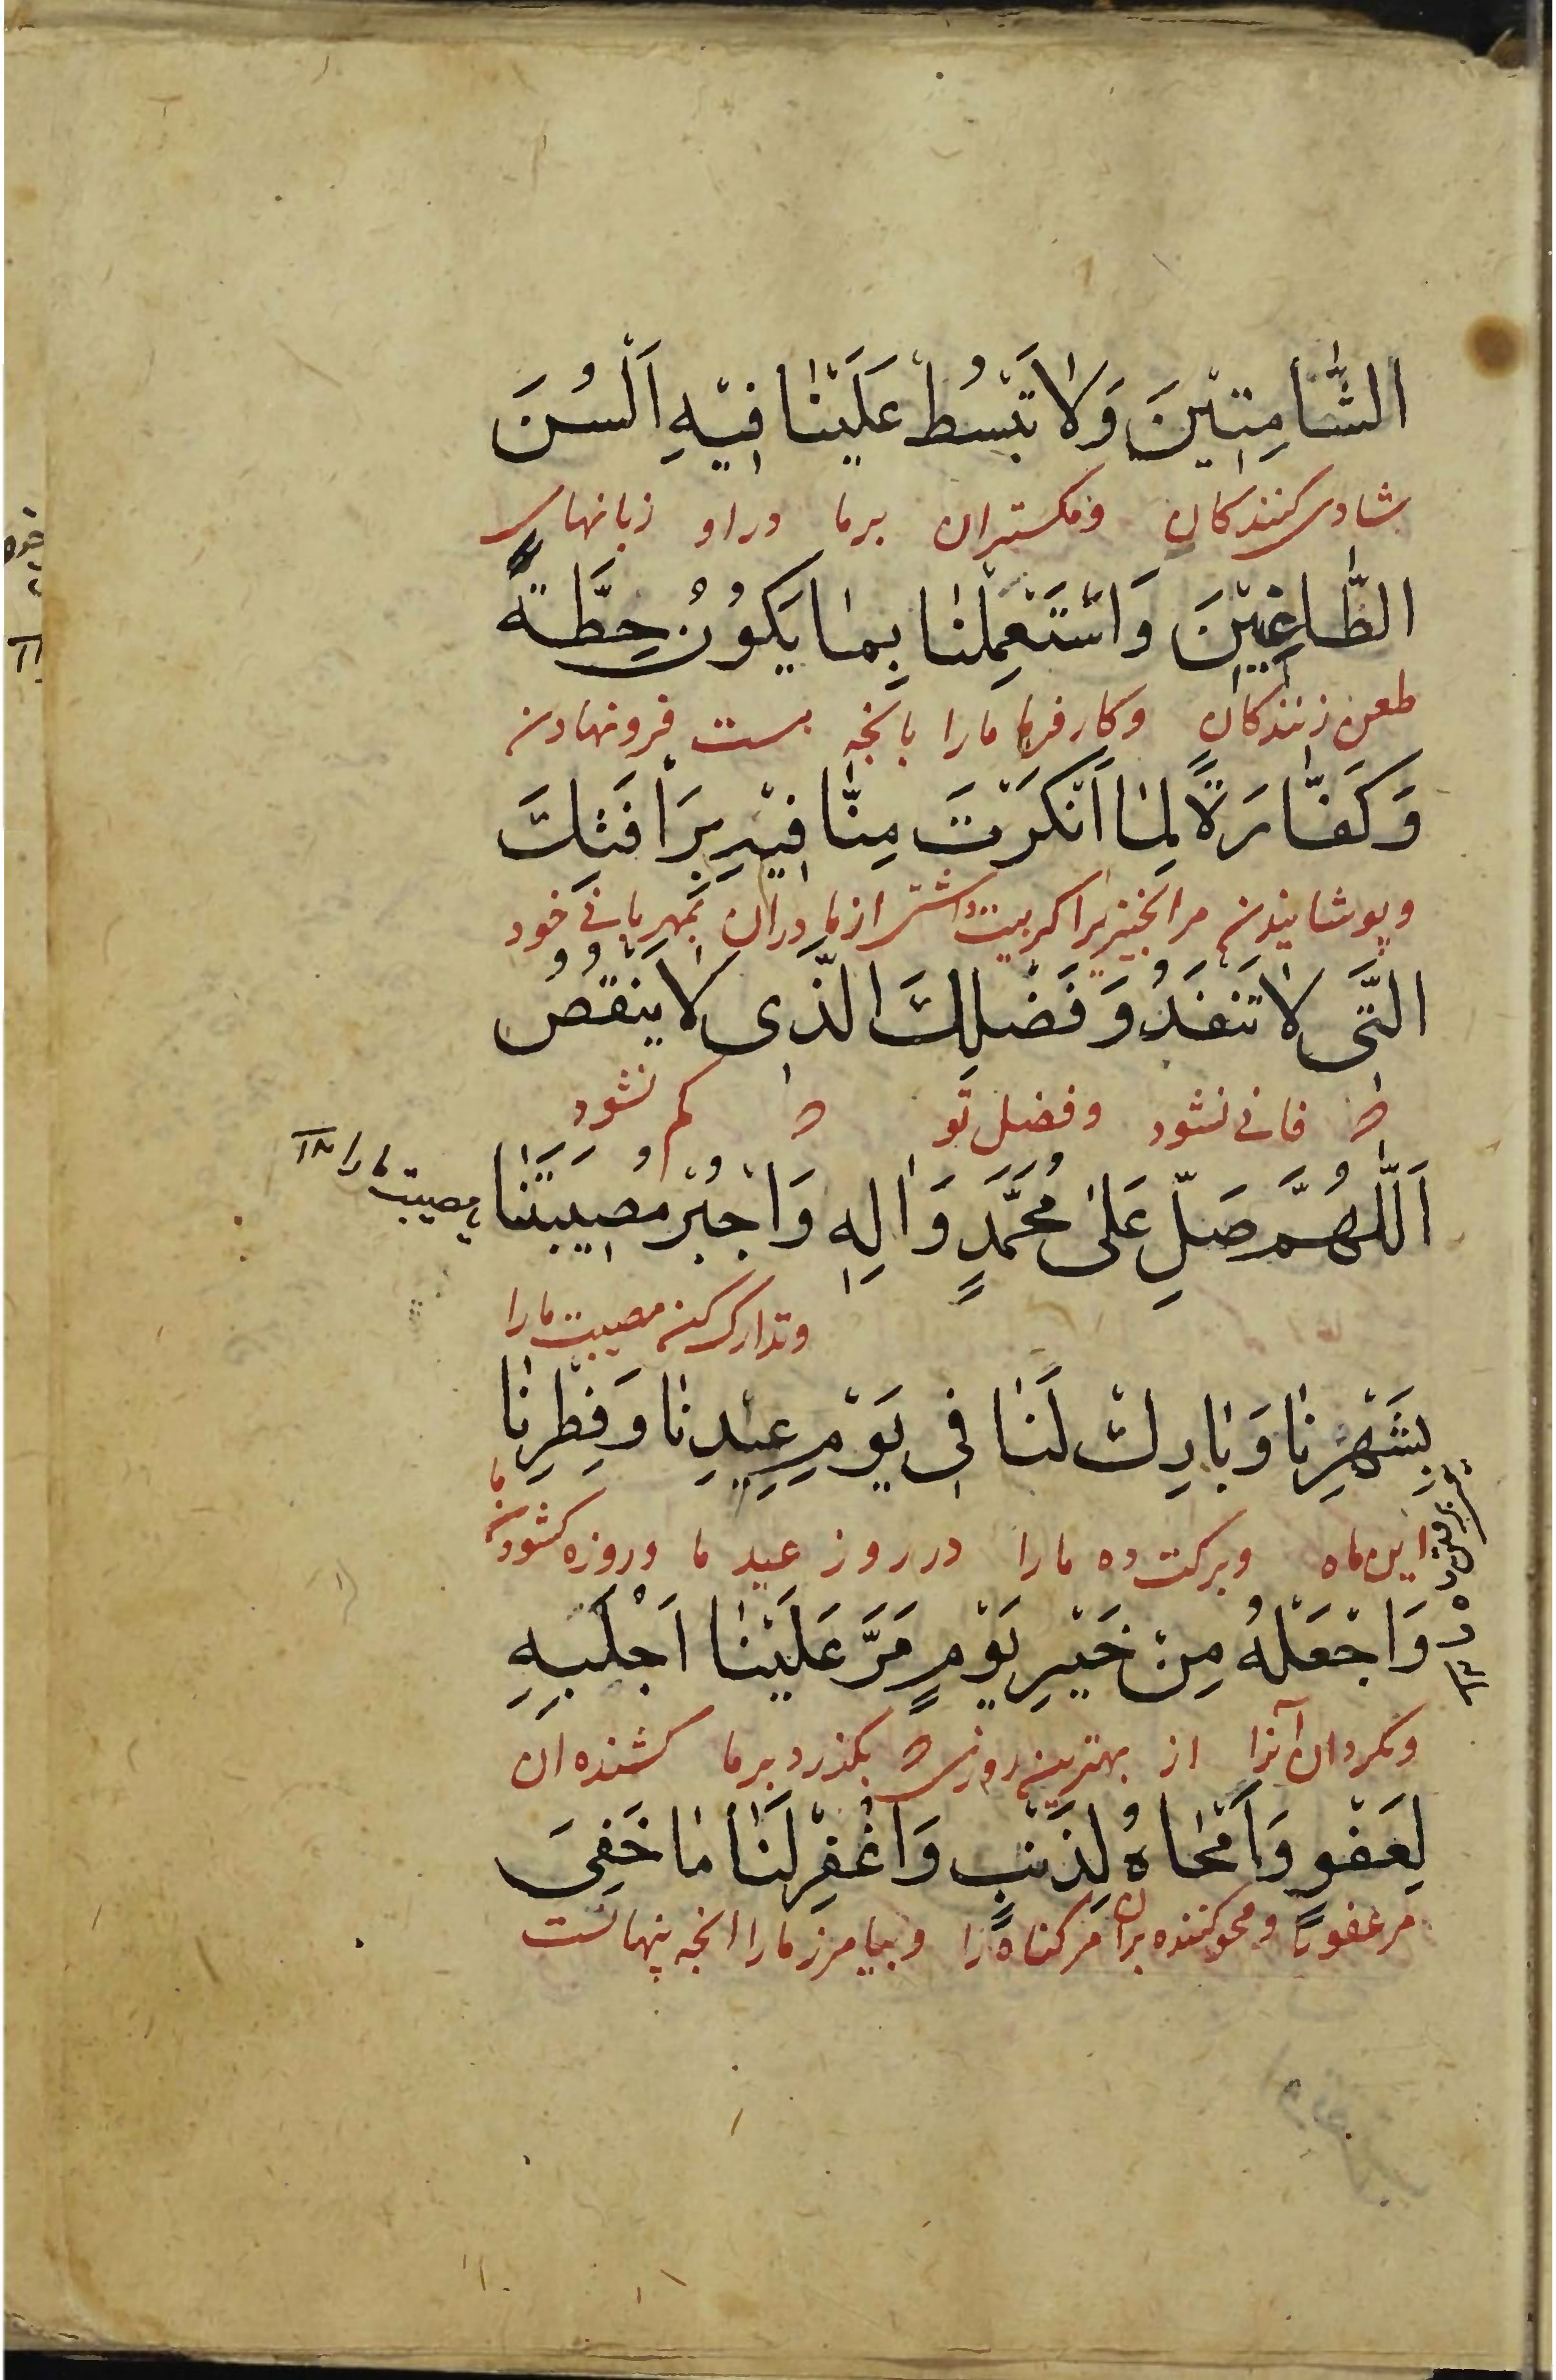 الشَّامِتِيْنَ وَلَا تَبْسُطْ عَلَيْنَا فِيْهِ اَلْسُنَ
شادی کنندکان ومکستران برما دراو زبانهای
الطَّاغِيْنَ وَاسْتَعْمِلْنَا بِمَا يَكُوْنُ حِطَّةً
طعن زنندکان وکارفرما مارا بانچه هست فرونهادن
وَكَفَّارَةً لِمَا اَنْكَرْتَ مِنَّا فِيْهِ بِرَأْفَتِكَ
وپوشانیدن مرانچیزیرا که داشتی ازما دران بمهربانی خود
الَّتِى لَا تَنْفَدُ وَفَضْلِكَ الَّذِى لَا يَنْقُصُ
که فانی نشود وفضل تو که کم نشود
اَللّٰهُمَّ صَلِّ عَلٰى مُحَمَّدٍ وَاٰلِهِ وَاجْبُرْ مُصِيْبَتَنَا
مصیبت مارا
وتدارک کن مصیبت مارا
بِشَهْرِنَا وَبَارِكْ لَنَا فِى يَوْمِ عِيْدِنَا وَفِطْرِنَا
این ماه وبرکت ده مارا درروز عید ما وروزه کشودن ما
وَاجْعَلْهُ مِنْ خَيْرِ يَوْمٍ مَرَّ عَلَيْنَا اَجْلَبِهِ
وبکردان آنرا از بهترین روزی که بکذرد برما کشنده ان
لِعَفْوٍ وَاَمْحَاهُ لِذَنْبٍ وَاغْفِرْ لَنَا مَا خَفِىَ
مرعفورا ومحوکننده بران مرکناه را وبیامرز مارا انچه پنهانست